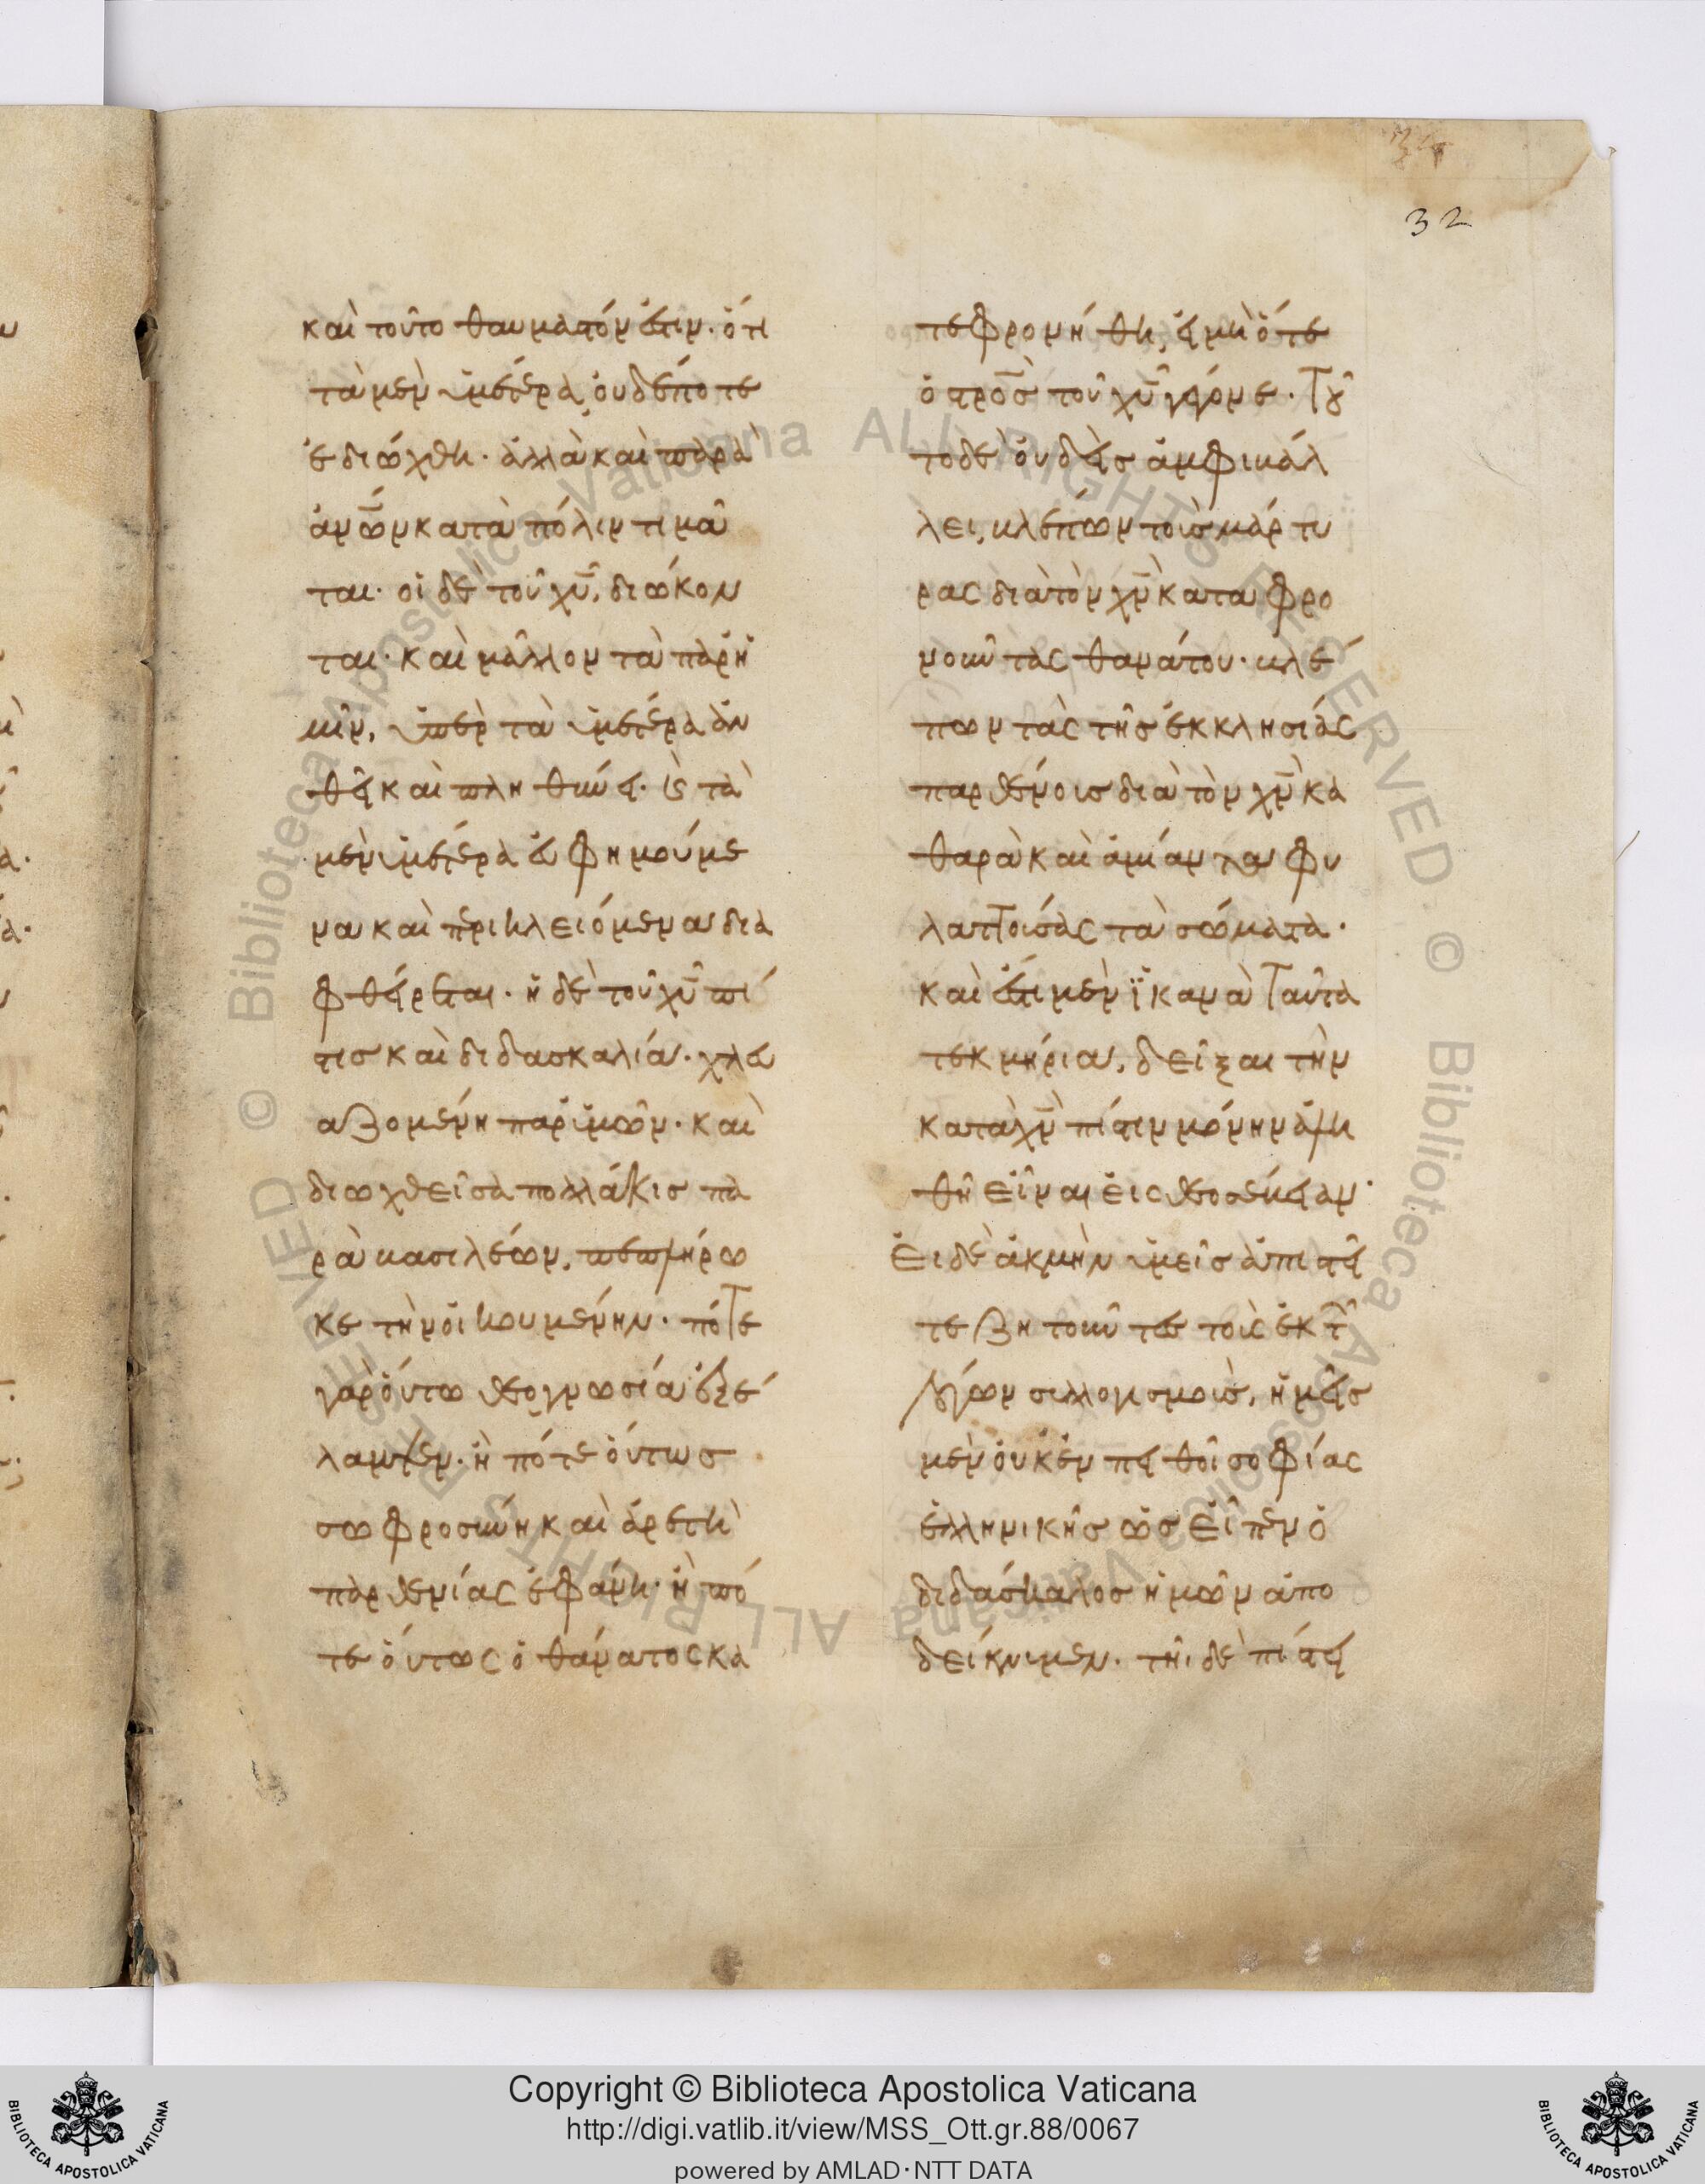 32
καὶ τοῦτο θαυμαστόν ἐστιν. ὅτι
τὰ μὲν ὑμέτερα, οὐδέποτε
ἐδιώχθη. ἀλλὰ καὶ παρὰ
ἀν̅ω̅ν κατὰ πόλιν τιμᾶ
ται. οἱ δὲ τοῦ χυ̅, διώκον
ται. καὶ μᾶλλον τὰ παρ' ἡ
μῖν, ὑπὲρ τὰ ὑμέτερα ἀν
θεῖ καὶ πληθύνει. καὶ τὰ
μὲν ὑμέτερα εὐφημούμε
να καὶ περικλειόμενα δια
φθείρεται. ἡ δὲ τοῦ χυ̅ πί
στισ καὶ διδασκαλία. χλευ
αζομένη παρ' ὑμῶν. καὶ
διωχθεῖσα πολλάκισ πα
ρὰ βασιλέων, πεπλήρω
κε τὴν οἰκουμένην. πότε
γὰρ ὄντω θεογνωσία ἐξέ
λαμψεν. ἢ πότε ὄντωσ
σωφροσύνη καὶ ἀρετὴ
παρθενίας ἐφάνη. ἢ πό
τε ὄντως ὁ θάνατος κα
τεφρονήθη, εἰ μὴ ὅτε
ὁ στρο̅σ̅ τοῦ χυ̅ γέγονε. Τοῦ
το δὲ οὐδεὶσ ἀμφιβάλ
λει, βλέπων τοὺσ μάρτυ
ρας διὰ τὸν χν̅ καταφρο
νοῦντας θανάτου. βλέ
πων τὰς τῆσ ἐκκλησίας
παρθένοισ διὰ τὸν χν̅ κα
θαρὰ καὶ ἀμίαντα φυ
λαττοίσας τὰ σώματα.
καὶ ἔστι μὲν ἱκανὰ ταῦτα
τεκμήρια, δεῖξαι τὴν
κατὰ χν̅ πίστιν μόνην ἀλη
θῆ εἶναι εἰς θεοσέβειαν.
Εἰ δὲ ἀκμὴν ὑμεῖσ ἀπιστεῖ
τε ζητοῦντες τοὶς ἐκ τῶν
λόγων σιλλογισμοὺσ, ἡμεῖσ
μὲν οὐκ ἐν πειθοῖ σοφίας
ἑλληνικῆσ ὡσ εἶπεν ὁ
διδάσκαλοσ ἡμῶν ἀπο
δείκνιμεν. τῆι δὲ πίστει
Copyright © Biblioteca Apostolica Vaticana
http://digi.vatlib.it/view/MSS_Ott.gr.88/0067
powered by AMLAD·NTT DATA